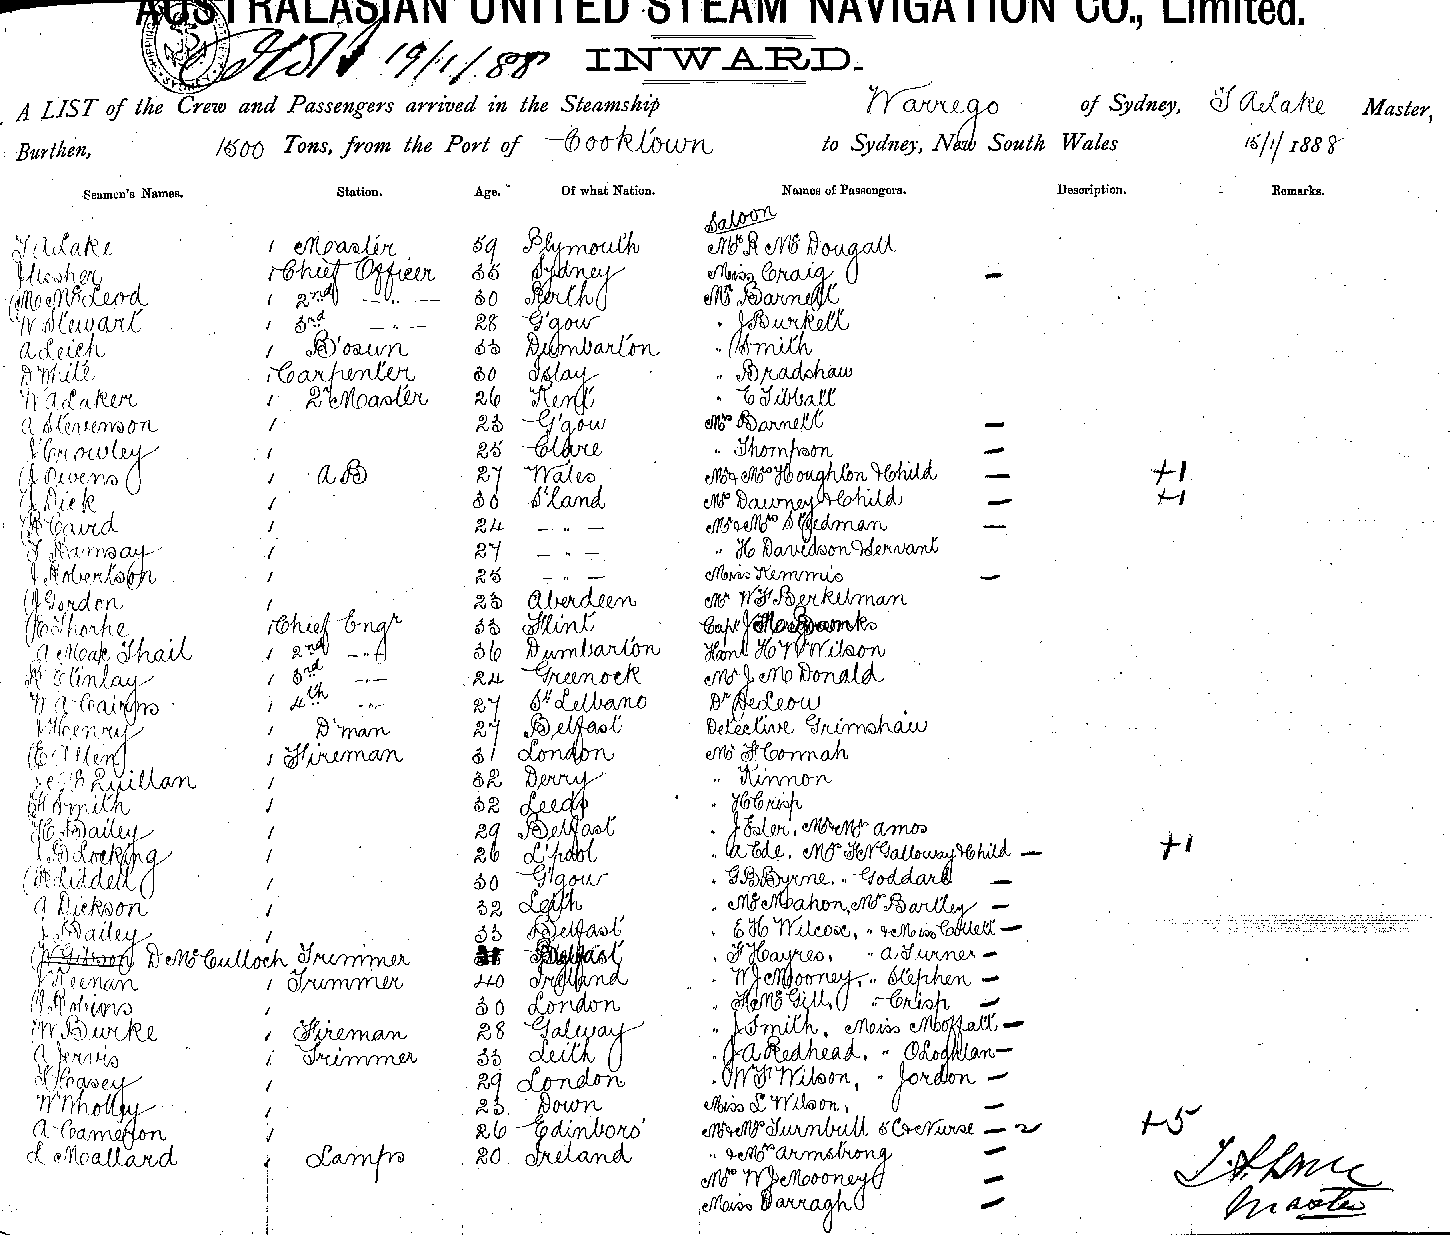 AUSTRALASIAN UNITED STEAM NAVIGATION CO., Limited.
19/1/88 INWARD.
A LIST of the Crew and Passengers arrived in the Steamship Warrego of Sydney, T A Lake Master,
Burthen, 1500 Tons, from the Port of Cooktown to Sydney, New South Wales 15/1/1888
Seamen's Names. Station. Age. Of what Nation. Names of Passengers. Description. Remarks.
Saloon
T A Lake 1 Master 59 Plymouth Mr R McDougall
J Mosher 1 Chief Officer 35 Sydney Miss Craig —
M McLeod 1 2nd — " — 30 Perth Mr Barnett
W Stewart 1 3rd — " — 28 G'gow " J Burkett
A Leich 1 B'osun 33 Dumbarton " Smith
D White 1 Carpenter 30 Islay " Bradshaw
W A Laker 1 2r Master 26 Kent " E Tibball
A Stevenson 1 23 G'gow Mrs Barnett —
J Crowley 1 25 Clare " Thompson —
J Owens 1 A B 27 Wales Mr & Mrs Houghton & Child — +1
J Dick 1 30 S'land Mrs Dawney & Child — +1
Caird 1 24 — " — Mr & Mrs Stedman —
T Ramsay 1 27 — " — " H Davidson & Servant
J Robertson 1 25 — " — Miss Kemmis —
J Gordon 1 23 Aberdeen Mr W F Berkelman
Thorpe 1 Chief Engr 33 Flint Capt J Banks
A MacPhail 1 2nd — " 36 Dumbarton Honl H W Wilson
Finlay 1 3rd — " — 24 Greenock Mr J McDonald
W A Cairns 1 4th " 27 St Dr
J Henry 1 D'man 27 Belfast Detective Grimshaw
E Allen 1 Fireman 31 London Mr F Connah
McQuillan 1 32 Derry " Kinnon
Smith 1 32 Leeds " H Crisp
Bailey 1 29 Belfast " J Ester, Mr & Mrs Amos
G Locking 1 26 L'pool " A Ede, Mrs F N Galloway & Child — +1
Liddell 1 30 G'gow " G B Byrne, " Goddard —
A Dickson 1 32 Leith " McMahon, Mrs Bartley —
J Bailey 1 33 Belfast " E H Wilcox, " & Miss Collett —
W Gibson D McCulloch Trimmer Belfast " F Hayres, " A Turner —
Keenan 1 Trimmer 40 Ireland " W J Mooney, " Stephen —
Robins 1 30 London " H McGill, " Crisp —
W Burke 1 Fireman 28 Galway " J Smith, Miss Moffatt —
A Jervis 1 Trimmer 33 Leith " J A Redhead, " O'Loghlan —
Casey 1 29 London " W F Wilson, " Jordon —
W Wholley 1 23 Down Miss L Wilson, —
A Cameron 1 26 Edinboro' Mr & Mrs Turnbull 5 C & Nurse — 2 +5
L Mallard 1 Lamps 20 Ireland " & Mrs Armstrong —
Mrs W J Mooney —
Miss Darragh —
T. A. Lake
Master